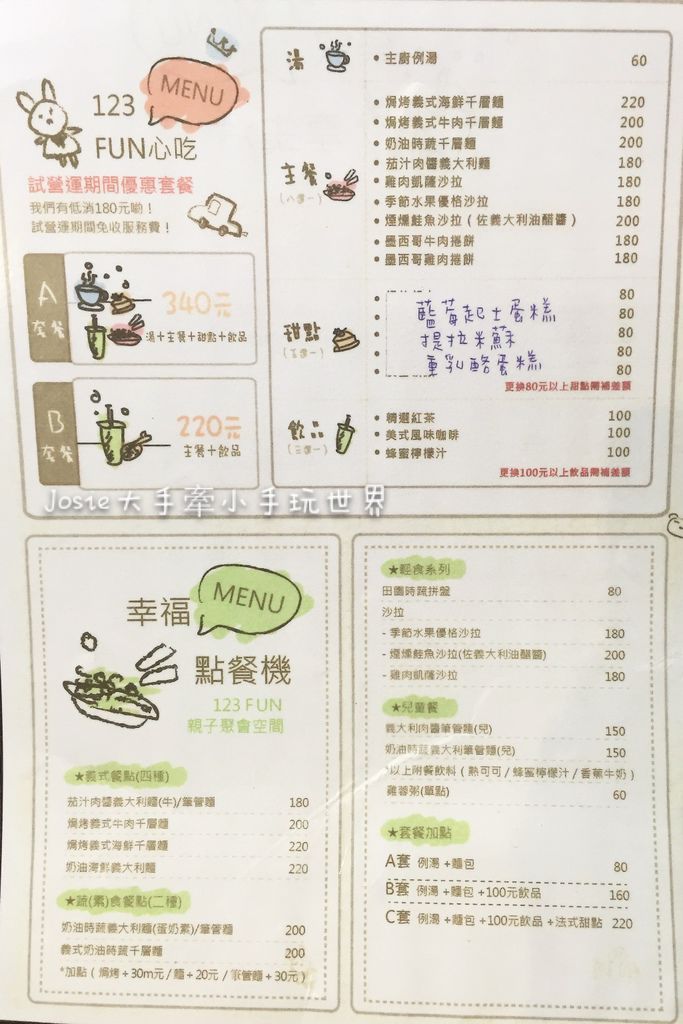 123
MENU
FUN心吃
試營運期間優惠套餐
我們有低消180元喲！
試營運期間免收服務費！
A
套餐
340元
湯+主餐+甜點+飲品
B
套餐
220元
主餐+飲品
湯
•主廚例湯 60
主餐
(八選一)
•焗烤義式海鮮千層麵 220
•焗烤義式牛肉千層麵 200
•奶油時蔬千層麵 200
•茄汁肉醬義大利麵 180
•雞肉凱薩沙拉 180
•季節水果優格沙拉 180
•煙燻鮭魚沙拉（佐義大利油醋醬） 200
•墨西哥牛肉捲餅 180
•墨西哥雞肉捲餅 180
甜點
• 80
•藍莓起士蛋糕 80
•提拉米蘇 80
•重乳酪蛋糕 80
• 80
更換80元以上甜點需補差額
飲品
(三選一)
•精選紅茶 100
•美式風味咖啡 100
•蜂蜜檸檬汁 100
更換100元以上飲品需補差額
Josie大手牽小手玩世界
幸福
MENU
點餐機
123 FUN
親子聚會空間
★義式餐點(四種)
茄汁肉醬義大利麵(牛)/筆管麵 180
焗烤義式牛肉千層麵 200
焗烤義式海鮮千層麵 220
奶油海鮮義大利麵 220
★蔬(素)食餐點(二種)
奶油時蔬義大利麵(蛋奶素)/筆管麵 200
義式奶油時蔬千層麵 200
*加點（焗烤+30m元/麵+20元/筆管麵+30元）
★輕食系列
田園時蔬拼盤 80
沙拉
- 季節水果優格沙拉 180
- 煙燻鮭魚沙拉(佐義大利油醋醬) 200
- 雞肉凱薩沙拉 180
★兒童餐
義大利肉醬筆管麵(兒) 150
奶油時蔬義大利筆管麵(兒) 150
*以上附餐飲料（熱可可/蜂蜜檸檬汁/香蕉牛奶）
雞蓉粥(單點) 60
★套餐加點
A套 例湯+麵包 80
B套 例湯+麵包+100元飲品 160
C套 例湯+麵包+100元飲品+法式甜點 220